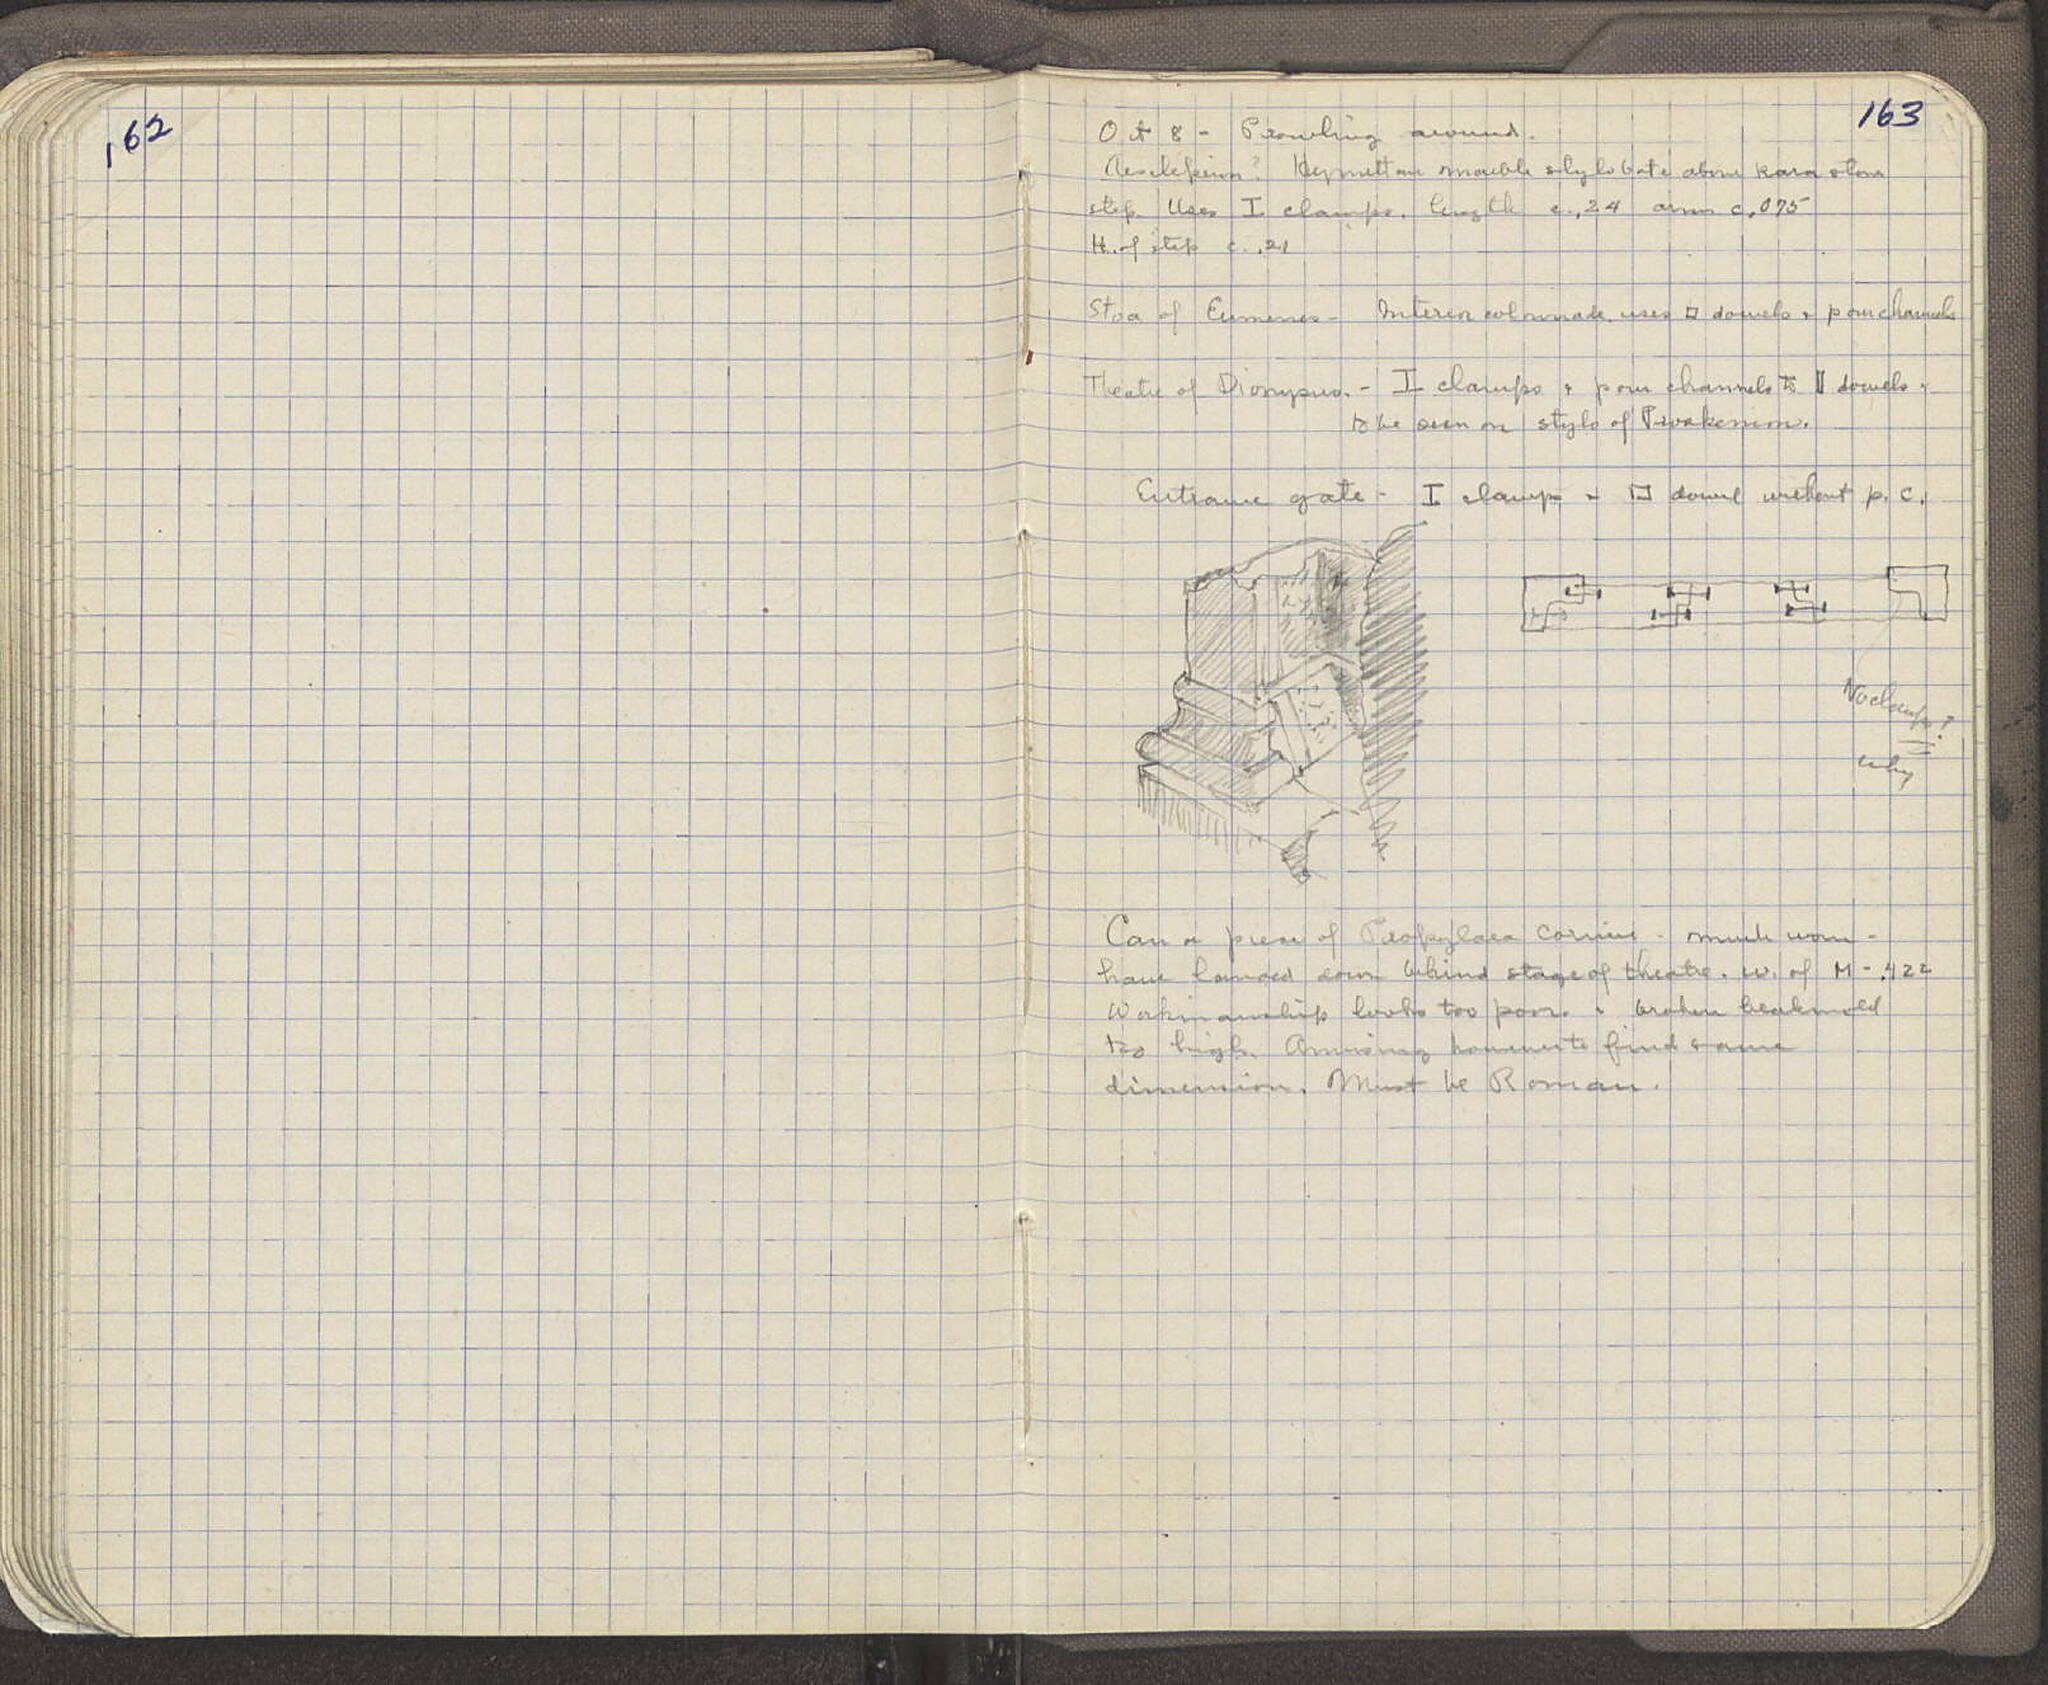 162
163
Oct 8 - Prowling around.
Aesclepieion? Hymettan marble stylobate above kara stone
step. Uses I clamps. length c. .24 arm c .075
H. of step c. .21
Stoa of Eumenes - Interior colonnade uses □ dowels + pour channels
Theatre of Dionysus. - I clamps + pour channels to ▯ dowels +
to be seen on stylo of Proskenion.
Entrance gate - I clamps + □ dowel without p. c.
No clamps!
why
Can a piece of Propylaea cornice - much worn -
have landed down behind stage of theatre. W. of M - .422
Workmanship looks too poor. + broken beakmold
too high. Amusing however to find same
dimension. Must be Roman.